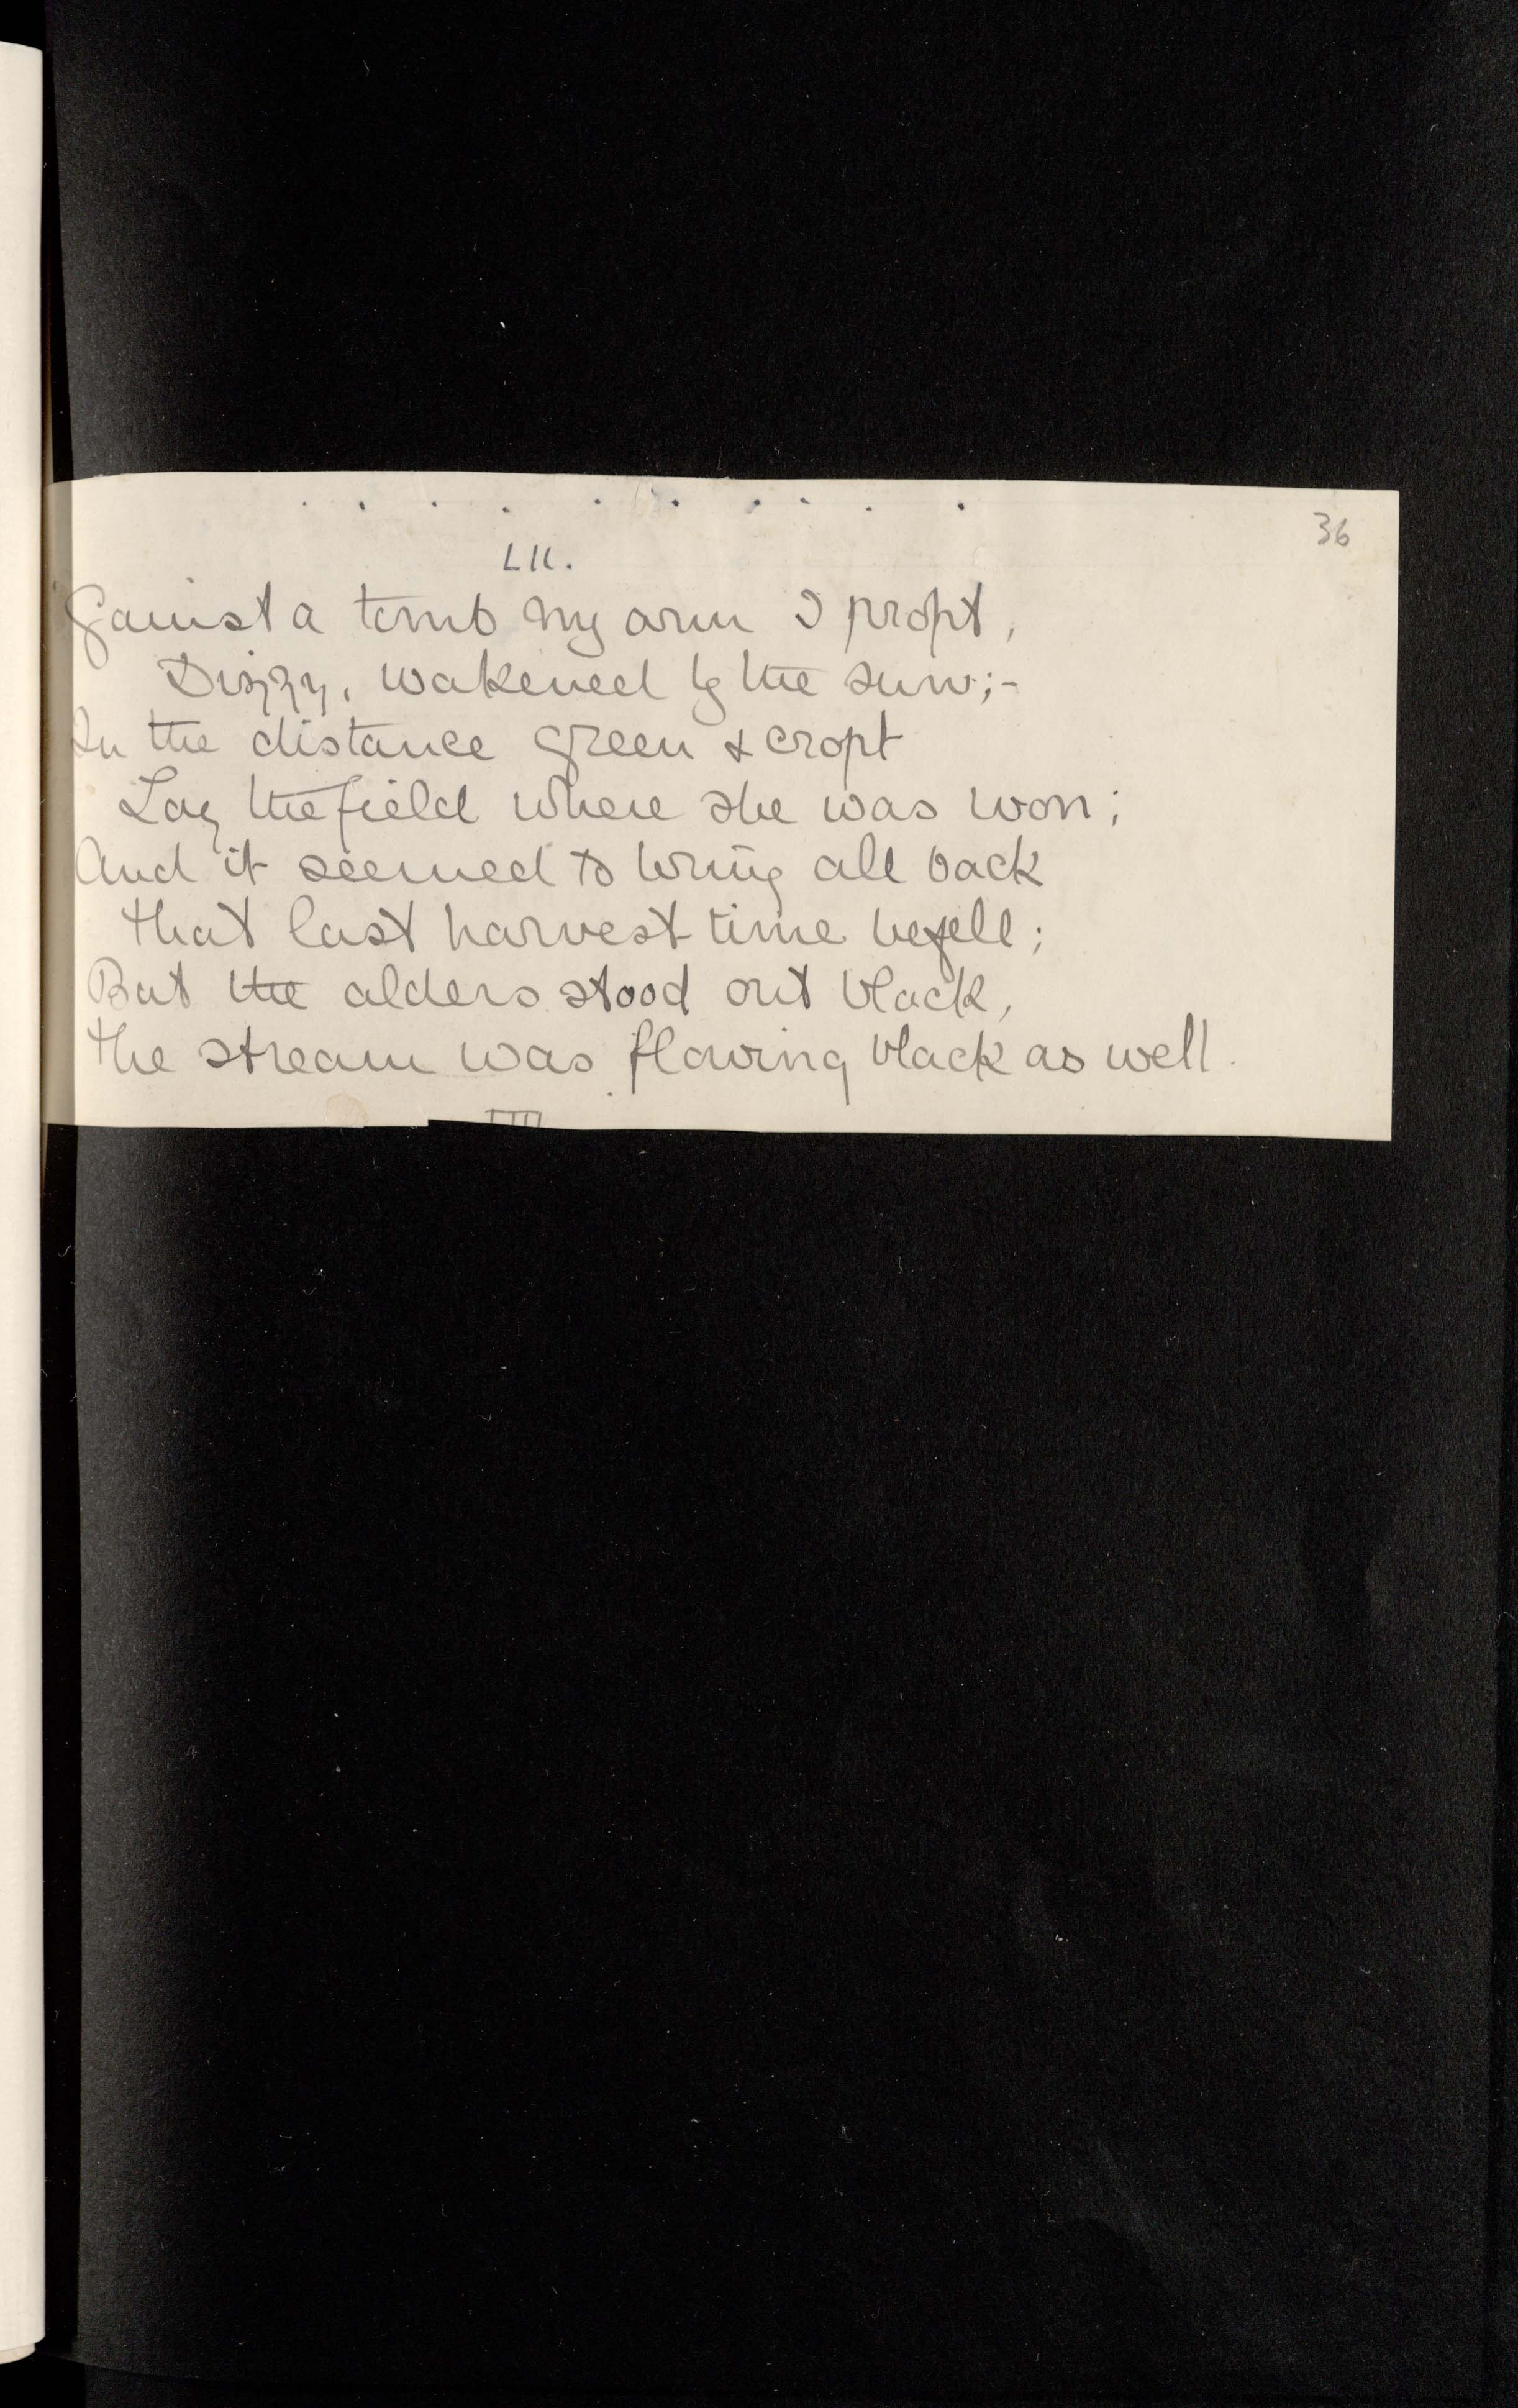 36
LII.
Gainst a tomb my arm I propt,
Dizzy, wakened by the sun;-
In the distance green & cropt
Lay the field where she was won;
And it seemed to bring all back
that last harvest time befell;
But the alders stood out black,
the stream was flowing black as well.